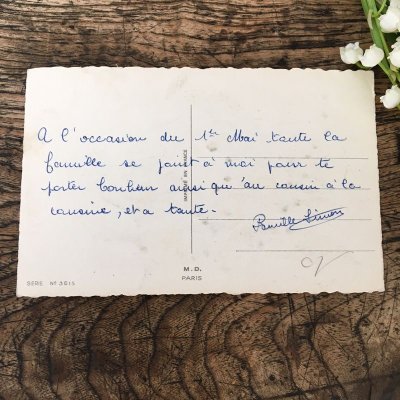 A l'occasion du 1er Mai toute la
famille se joint à moi pour te
porter bonheur ainsi qu'au cousin à la
cousine, et a tante.
Famille Simon
IMPRIMÉ EN FRANCE
M.D.
PARIS
SERIE N° 3615